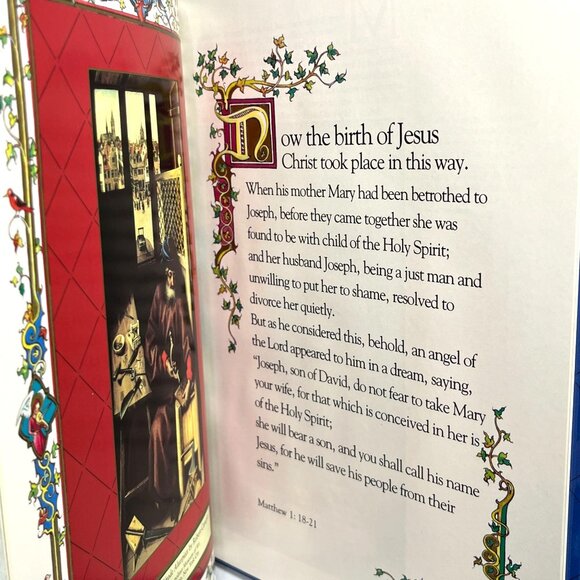 Now the birth of Jesus
Christ took place in this way.
When his mother Mary had been betrothed to
Joseph, before they came together she was
found to be with child of the Holy Spirit;
and her husband Joseph, being a just man and
unwilling to put her to shame, resolved to
divorce her quietly.
But as he considered this, behold, an angel of
the Lord appeared to him in a dream, saying,
"Joseph, son of David, do not fear to take Mary
your wife, for that which is conceived in her is
of the Holy Spirit;
she will bear a son, and you shall call his name
Jesus, for he will save his people from their
sins."
Matthew 1: 18-21